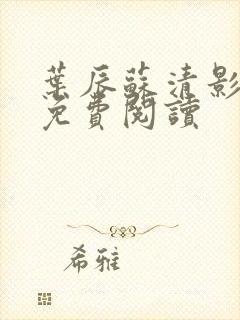 葉辰蘇清影
免費閱讀
希雅